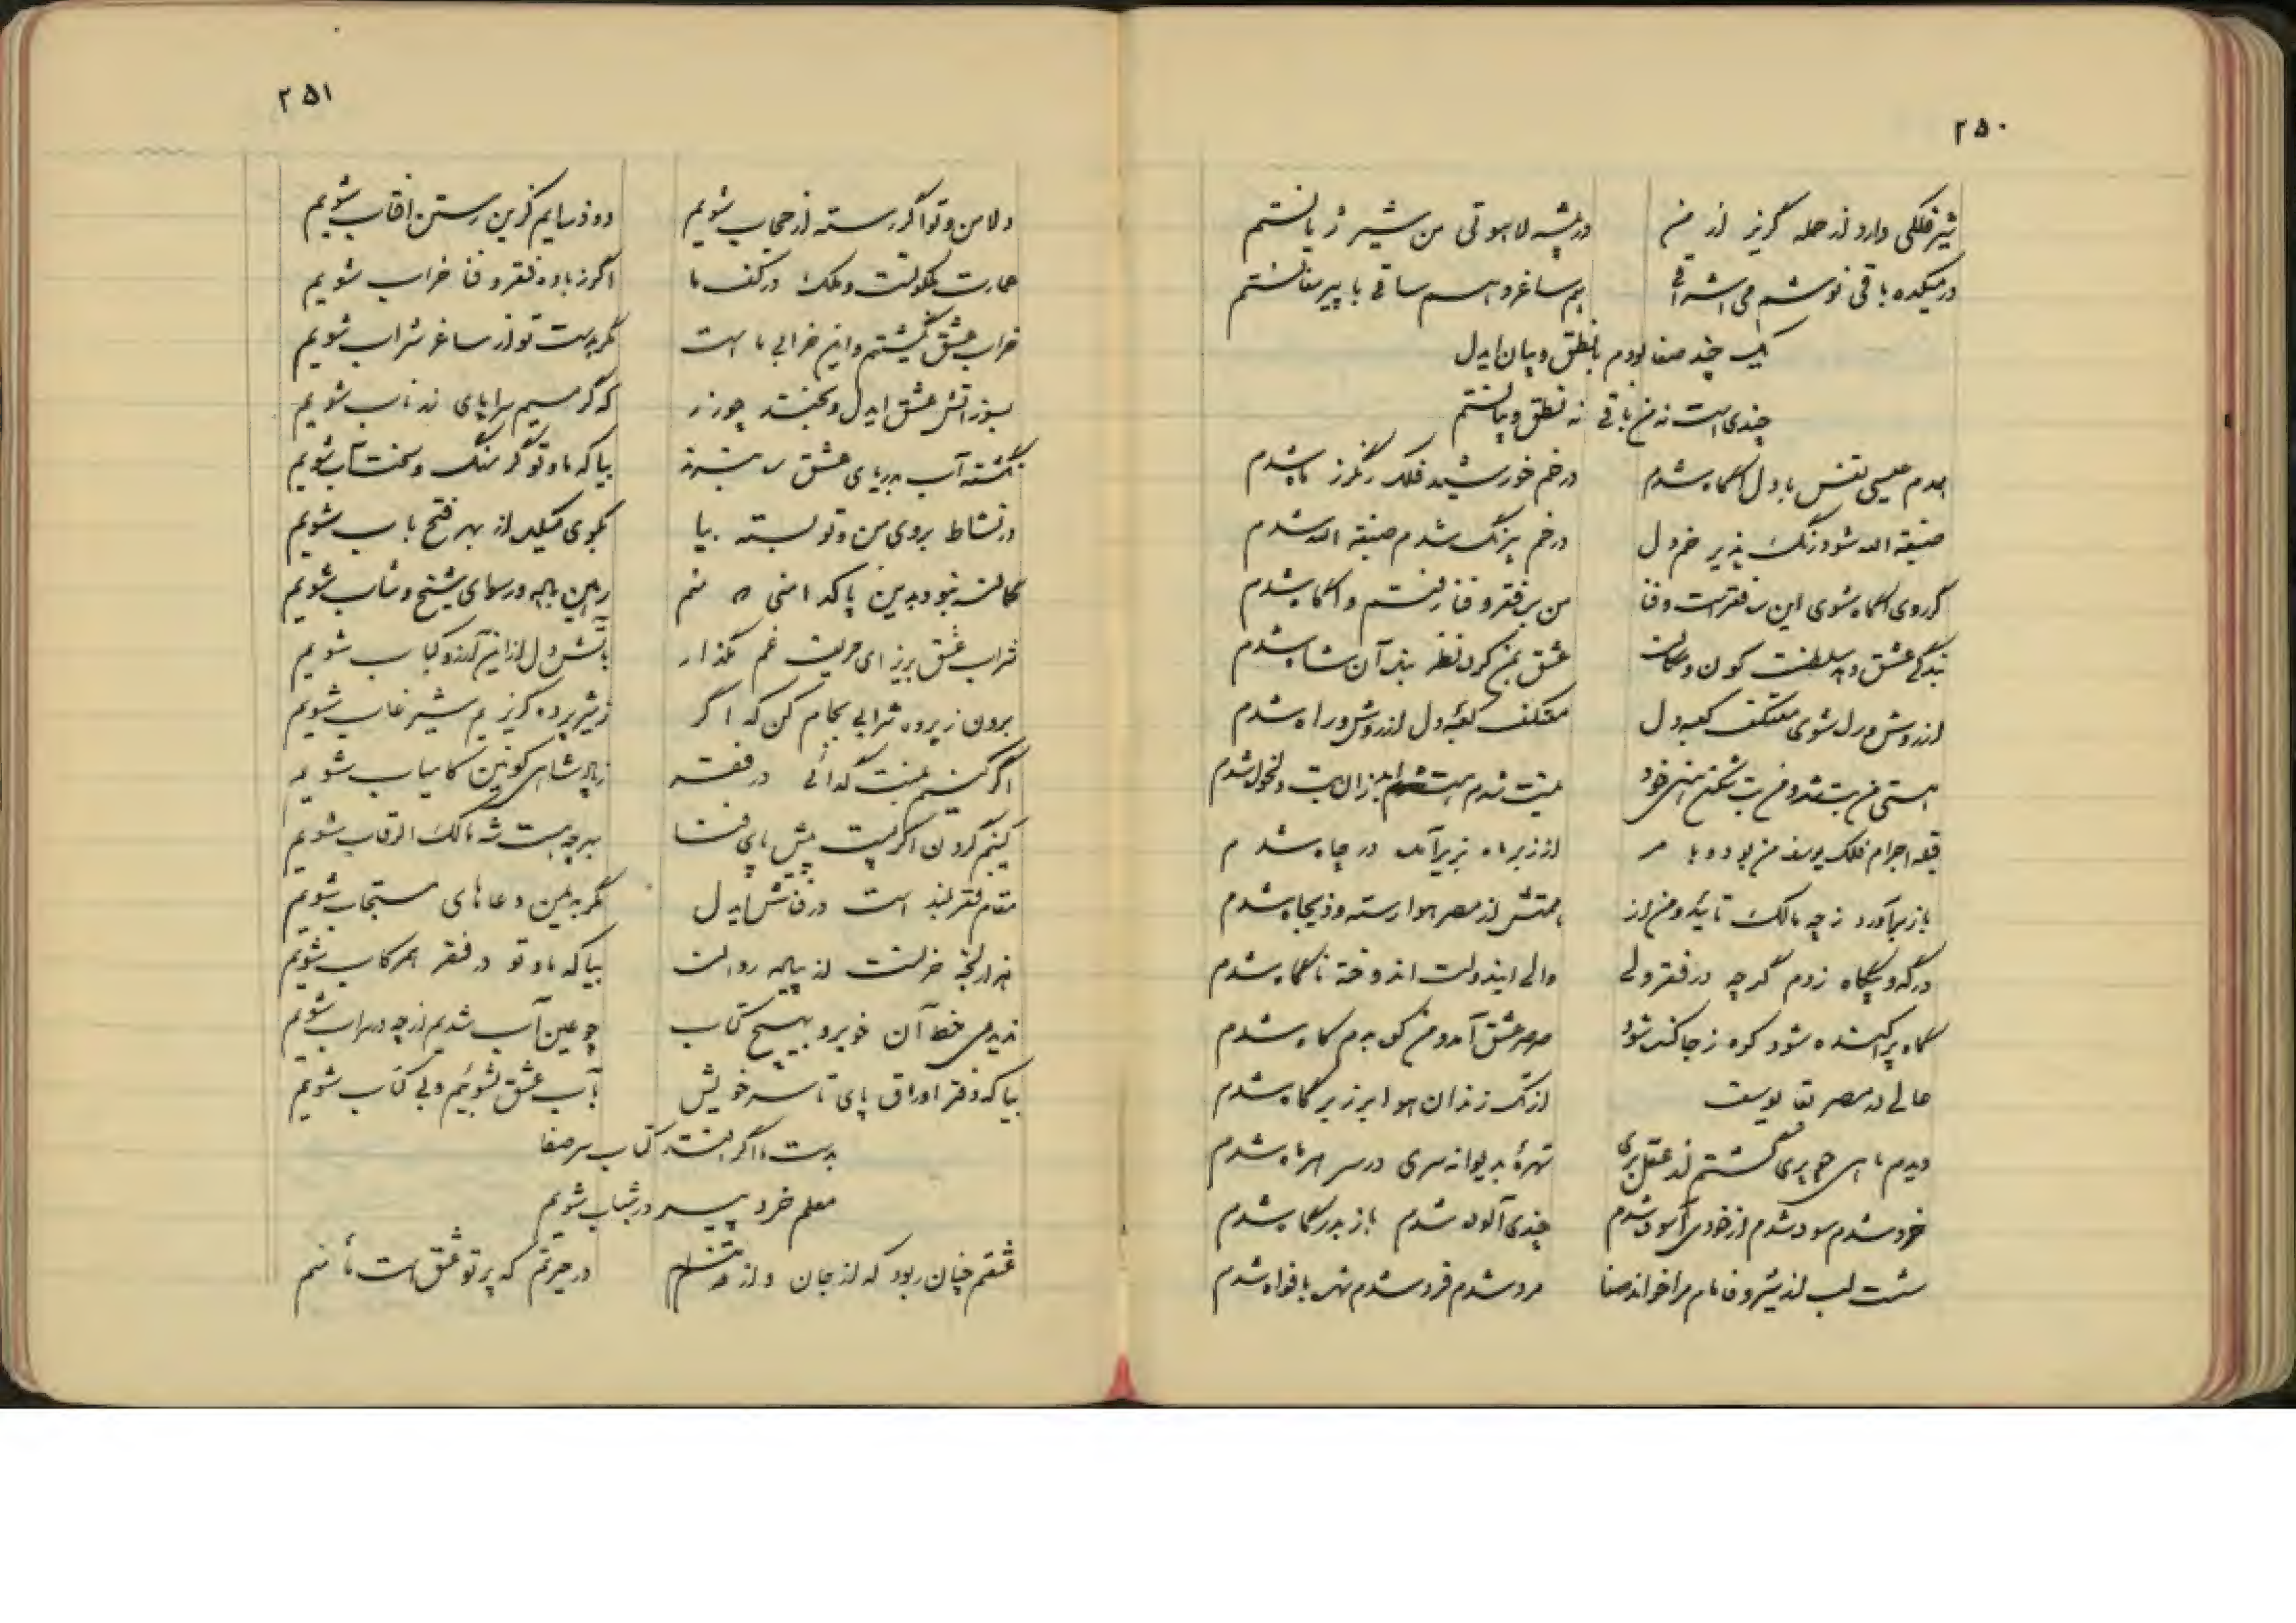 ۲۵۰
شیر فلکی دارد از حمله گریز از من در بیشه لاهوتی من شیر ژیانستم
در میکده باقی نوشم می اشراقی هم ساغر و هم ساقی با پیر مغانستم
یک چند صفا بودم با نطق و بیان ایدل
چندی است نه من باقی نه نطق و بیانستم
همدم عیسی نفس با دل آگاه شدم در خم خورشید فلک رنگرز ماه شدم
صبغة الله شود رنگ پذیر خم دل در خم بیرنگ شدم صبغة الله شدم
گر روی آگاه شوی این سر فقر است و فنا من بر فقر و فنا رفتم و آگاه شدم
بندگی عشق دهد سلطنت کون و مکان عشق بمن کرد نظر بنده آن شاه شدم
از روش دل شوی معتکف کعبه دل معتکف کعبه دل از روش و راه شدم
هستی من بت شد و من بت شکن هستی خود نیست شدم هست از آن بت دلخواه شدم
اجرام فلک یوسف من بود و با از زبر ماه بزیر آمد در چاه شدم
باز برآورد ز چه مالک تایید و من از همتش از مصر هوا رسته و ذیجاه شدم
درگه و بیگاه زدم گر چه در فقر ولی والی ایندولت اندوخته ناگاه شدم
کاه پراکنده شود کوه ز جا کنده شود صرصر عشق آمد و من کوه بدم کاه شدم
حالی در مصر بقا یوسف از تک زندان هوا بر زبر گاه شدم
دیدم ماهی چو پری گشتم از عقل بری شهره بدیوانه سری در سر هر ماه شدم
خود شدم سود شدم از خودی آسوده شدم چندی آلوده شدم باز بدرگاه شدم
شست لب از شیر و فا نام مرا خواند صفا مرد شدم فرد شدم شهره بافواه شدم
۲۵۱
دلا من و تو اگر رسته از حجاب شویم دو ذره‌ایم کزین رستن آفتاب شویم
عمارت ملکوتست و ملک در کف ما اگر ز باده فقر و فنا خراب شویم
خراب عشق نگشتیم و این خرابی ما است مگر بدست تو از ساغر شراب شویم
بسوز آتش عشق ایدل و بخند چو زر که گر سیم سراپای زر ناب شویم
نگشته آب بدریای عشق ره نبرند بیا که ما و تو گر سنگ و سخت آب شویم
در نشاط بروی من و تو بسته بیا بکوی میکده از بهر فتح باب شویم
کمالت نبود بدین پاکدامنی منم رهین باده و رسوای شیخ و شاب شویم
شراب عشق بریز ای حریف غم مگذار بآتش دل از این آرزو کباب شویم
برون ز پرده شرابی بجام کن که اگر ز شیر پرده گریزیم شیر غاب شویم
اگر کنیم بهمت گدائی در فقر ز پادشاهی کونین کامیاب شویم
کنیم گردن اگر پست پیش پای فنا بهر چه هست شه مالک الرقاب شویم
مقام فقر بلند است در فنا ایدل مگر بیمن دعاهای مستجاب شویم
هزار لجه خم است از پیاله روانست بیا که ما و تو در فقر همرکاب شویم
ندیدمی خط آن خوبرو بهیچ کتاب چو عین آب شدیم از چه در سراب شویم
بیا که دفتر اوراق پای تا سر خویش بآب عشق بشوئیم و بی کتاب شویم
بدست ما اگر افتد کتاب سر صفا
معلم خرد پیر در شباب شویم
عشقم چنان ربود که از جان و از تنم در حیرتم که پرتو عشق است یا منم